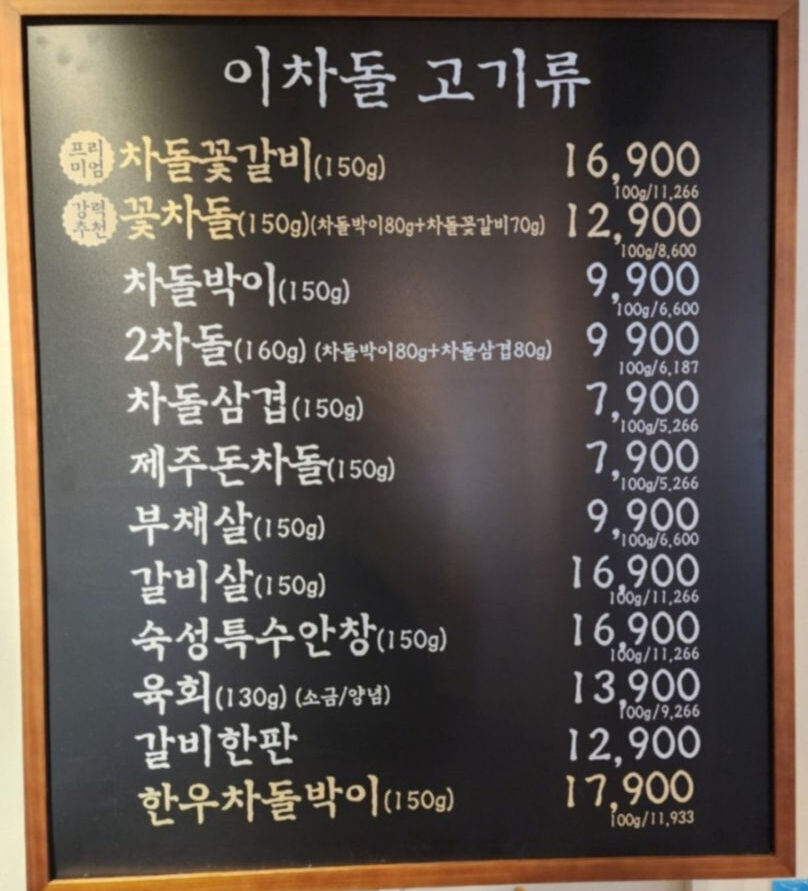 이차돌 고기류
프리미엄 차돌꽃갈비(150g) 16,900
100g/11,266
강력추천 꽃차돌(150g)(차돌박이80g+차돌꽃갈비70g) 12,900
100g/8,600
차돌박이(150g) 9,900
100g/6,600
2차돌(160g) (차돌박이80g+차돌삼겹80g) 9 900
100g/6,187
차돌삼겹(150g) 7,900
100g/5,266
제주돈차돌(150g) 7,900
100g/5,266
부채살(150g) 9,900
100g/6,600
갈비살(150g) 16,900
100g/11,266
숙성특수안창(150g) 16,900
100g/11,266
육회(130g) (소금/양념) 13,900
100g/9,266
갈비한판 12,900
한우차돌박이(150g) 17,900
100g/11,933